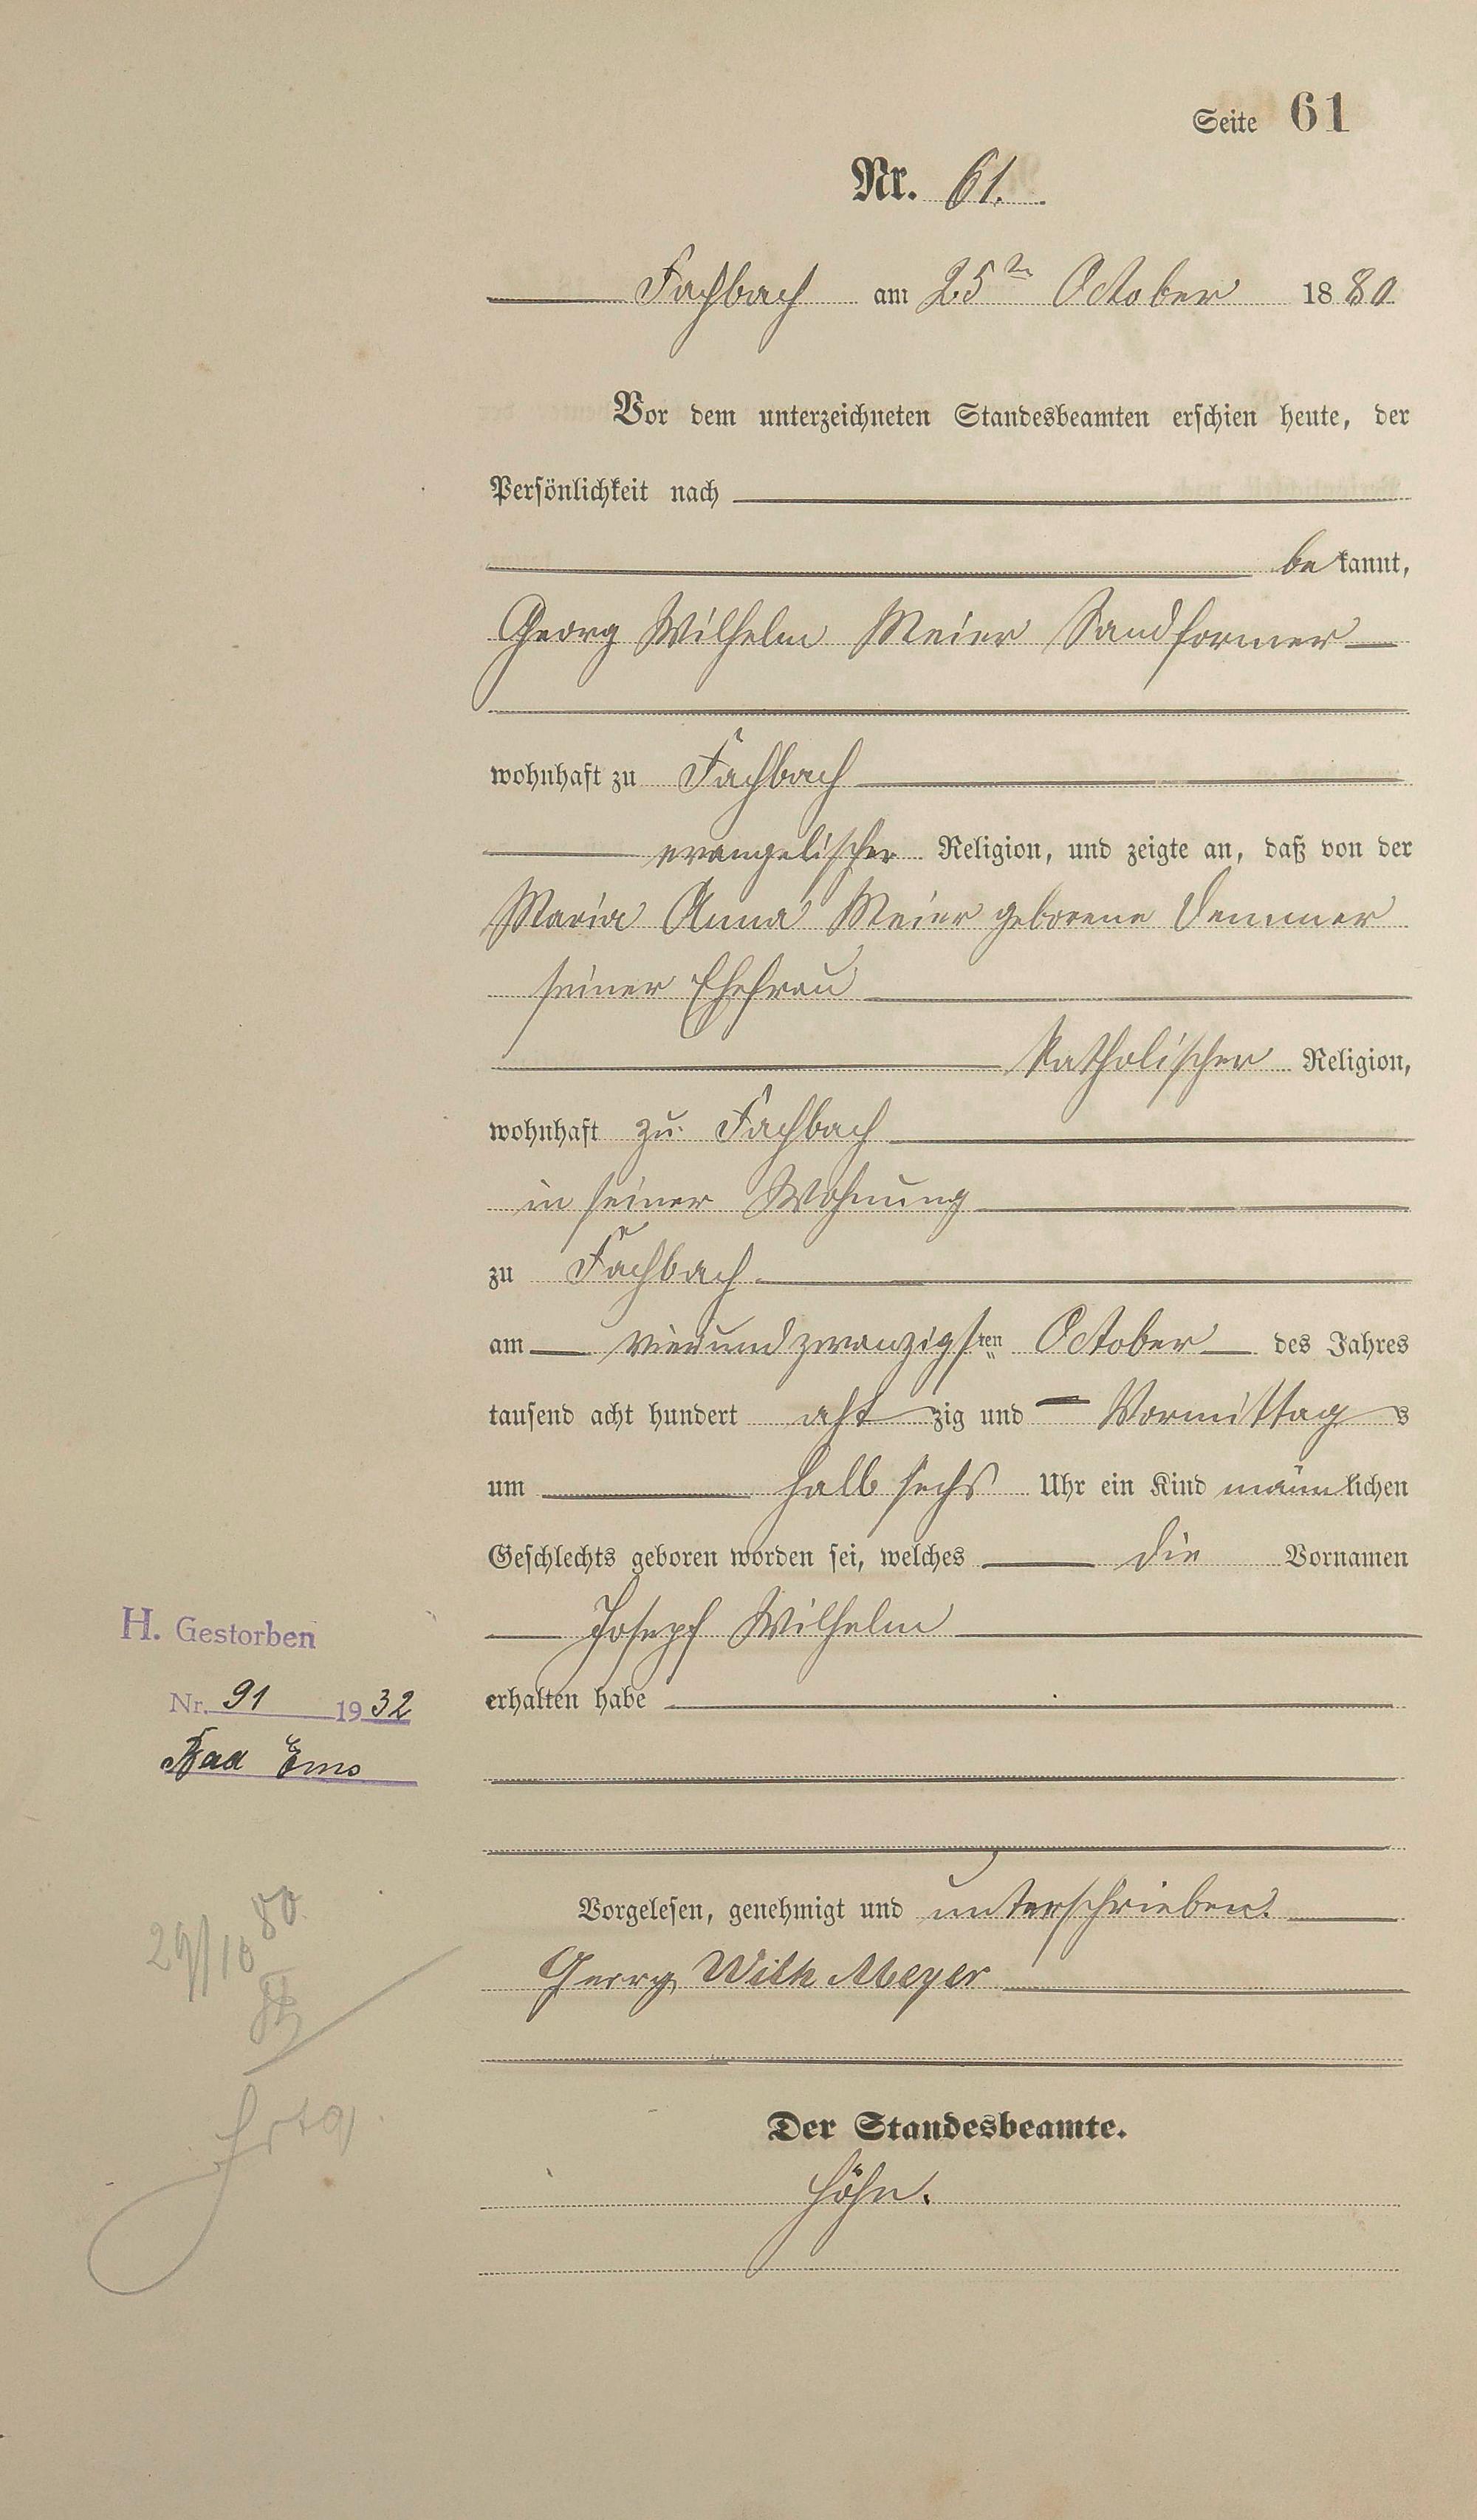 Seite 61
Nr. 61.
Fachbach am 25ten October 1880
Vor dem unterzeichneten Standesbeamten erschien heute, der
Persönlichkeit nach
bekannt,
Georg Wilhelm Meier Sandformer
wohnhaft zu Fachbach
evangelischer Religion, und zeigte an, daß von der
Maria Anna Meier geborene Demmer
seiner Ehefrau
katholischer Religion,
wohnhaft zu Fachbach
in seiner Wohnung
zu Fachbach
am vierundzwanzigsten October des Jahres
tausend acht hundert achtzig und Vormittags
um halb sechs Uhr ein Kind männlichen
Geschlechts geboren worden sei, welches die Vornamen
Joseph Wilhelm
erhalten habe
H. Gestorben
Nr. 91 1932
Bad Ems
Vorgelesen, genehmigt und unterschrieben.
Georg Wilh Meyer
29/10 80
Der Standesbeamte.
Höhn.